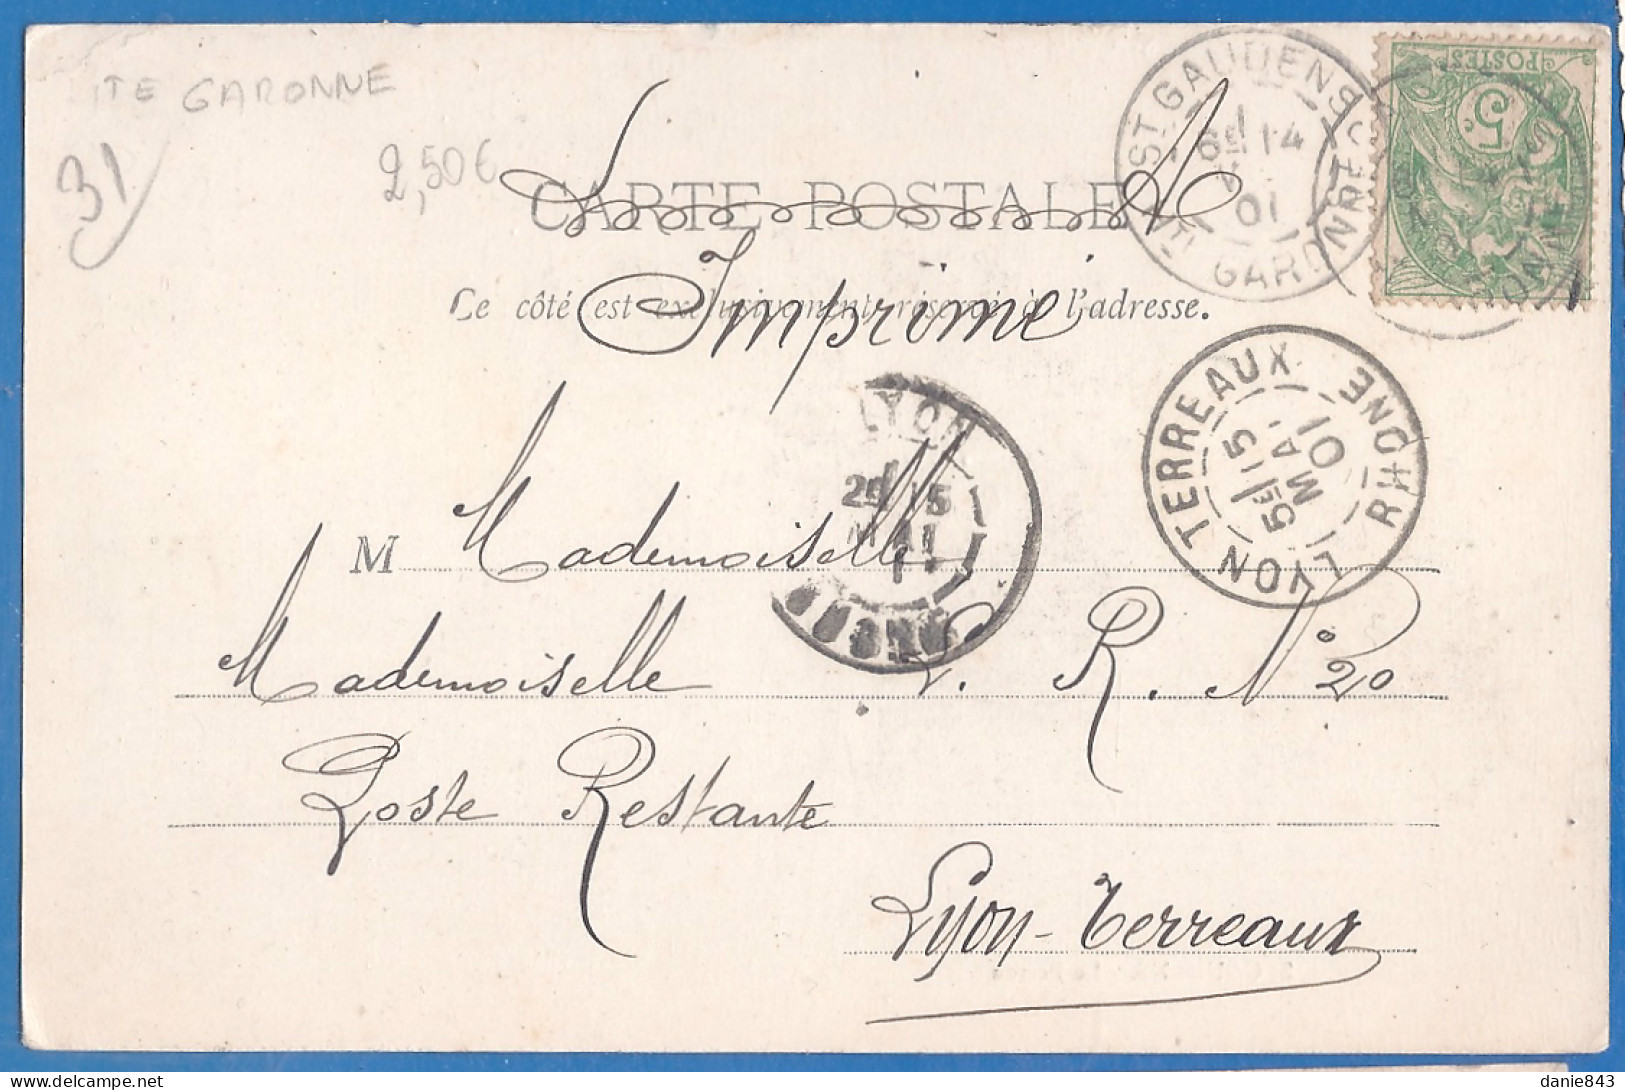 TE GARONNE
31
2,50€
CARTE POSTALE
Imprimé
Ce côté est exclusivement réservé à l'adresse.
ST GAUDENS
6E 14
01
HTE GARONNE
POSTES
5c
LYON TERREAUX
5E 15
MAI
01
RHONE
LYON
2E 15
MAI
M Mademoiselle
Mademoiselle L. R. N° 20
Poste Restante
Lyon-Terreaux
danie843